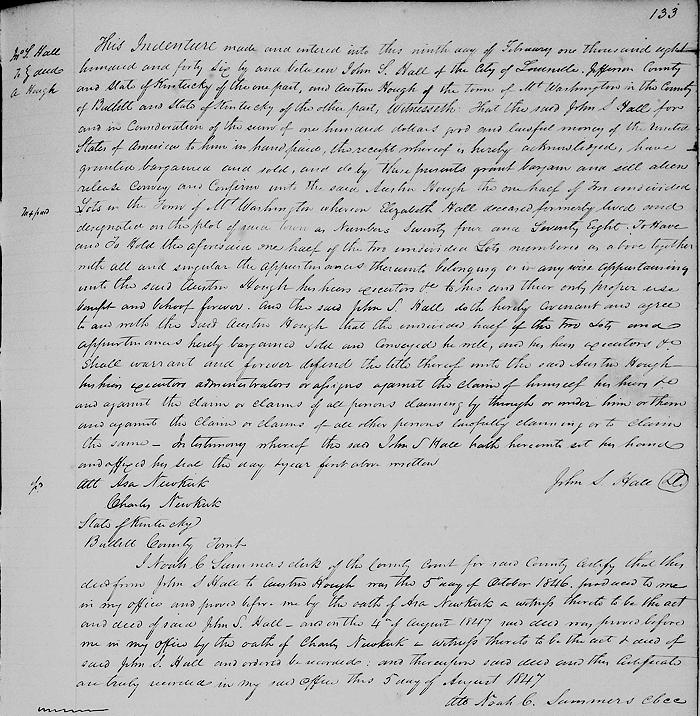 133
Jno S. Hall
To } deed
A Hough
This Indenture made and entered into this ninth day of February one thousand eight
hundred and forty six by and between John S. Hall of the City of Louisville Jefferson County
and State of Kentucky of the one part, and Austin Hough of the town of Mt Washington in the County
of Bullitt and State of Kentucky of the other part, Witnesseth That the said John S Hall for
and in Consideration of the sum of one hundred dollars good and lawful money of the United
States of America to him in hand paid, the receipt whereof is hereby acknowledged, have
granted bargained and sold, and do by these presents grant bargain and sell alien
release Convey and Confirm unto the said Austin Hough the one half of two undivided
Tax paid
Lots in the Town of Mt Washington whereon Elizabeth Hall deceased formerly lived and
designated on the plot of said town as Numbers Seventy four and Seventy Eight. To Have
and To Hold the aforesaid one half of the two undivided Lots numbered as above together
with all and singular the appurtenances thereunto belonging or in any wise appertaining
unto the said Austin Hough his heirs executors &c to his and their only proper use
benefit and behoof forever. And the said John S. Hall doth hereby Covenant and agree
to and with the said Austin Hough that the undivided half of the two Lots and
appurtenances hereby bargained Sold and Conveyed he will, and his heirs executors &c
Shall warrant and forever defend the title thereof unto the said Austin Hough
his heirs executors administrators or assigns against the claim of himself his heirs &c
and against the claim or claims of all persons claiming by through or under him or them
and against the claim or claims of all other persons lawfully claiming or to claim
the same – In testimony whereof the said John S Hall hath hereunto set his hand
and affixed his seal the day & year first above written
Att Asa Newkirk John S. Hall
Charles Newkirk
State of Kentucky
Bullitt County Sct
I Noah C Summers clerk of the County Court for said County Certify that this
deed from John S Hall to Austin Hough was the 5th day of October 1846. produced to me
in my office and proved before me by the oath of Asa Newkirk a witness thereto to be the act
and deed of said John S. Hall – and on the 4th of August 1847 said deed was proved before
me in my office by the oath of Charles Newkirk a witness thereto to be the act & deed of
said John S. Hall and ordered to be recorded: and thereupon said deed and this Certificate
are truly recorded in my said Office this 5 day of August 1847
Atto Noah C. Summers cbcc